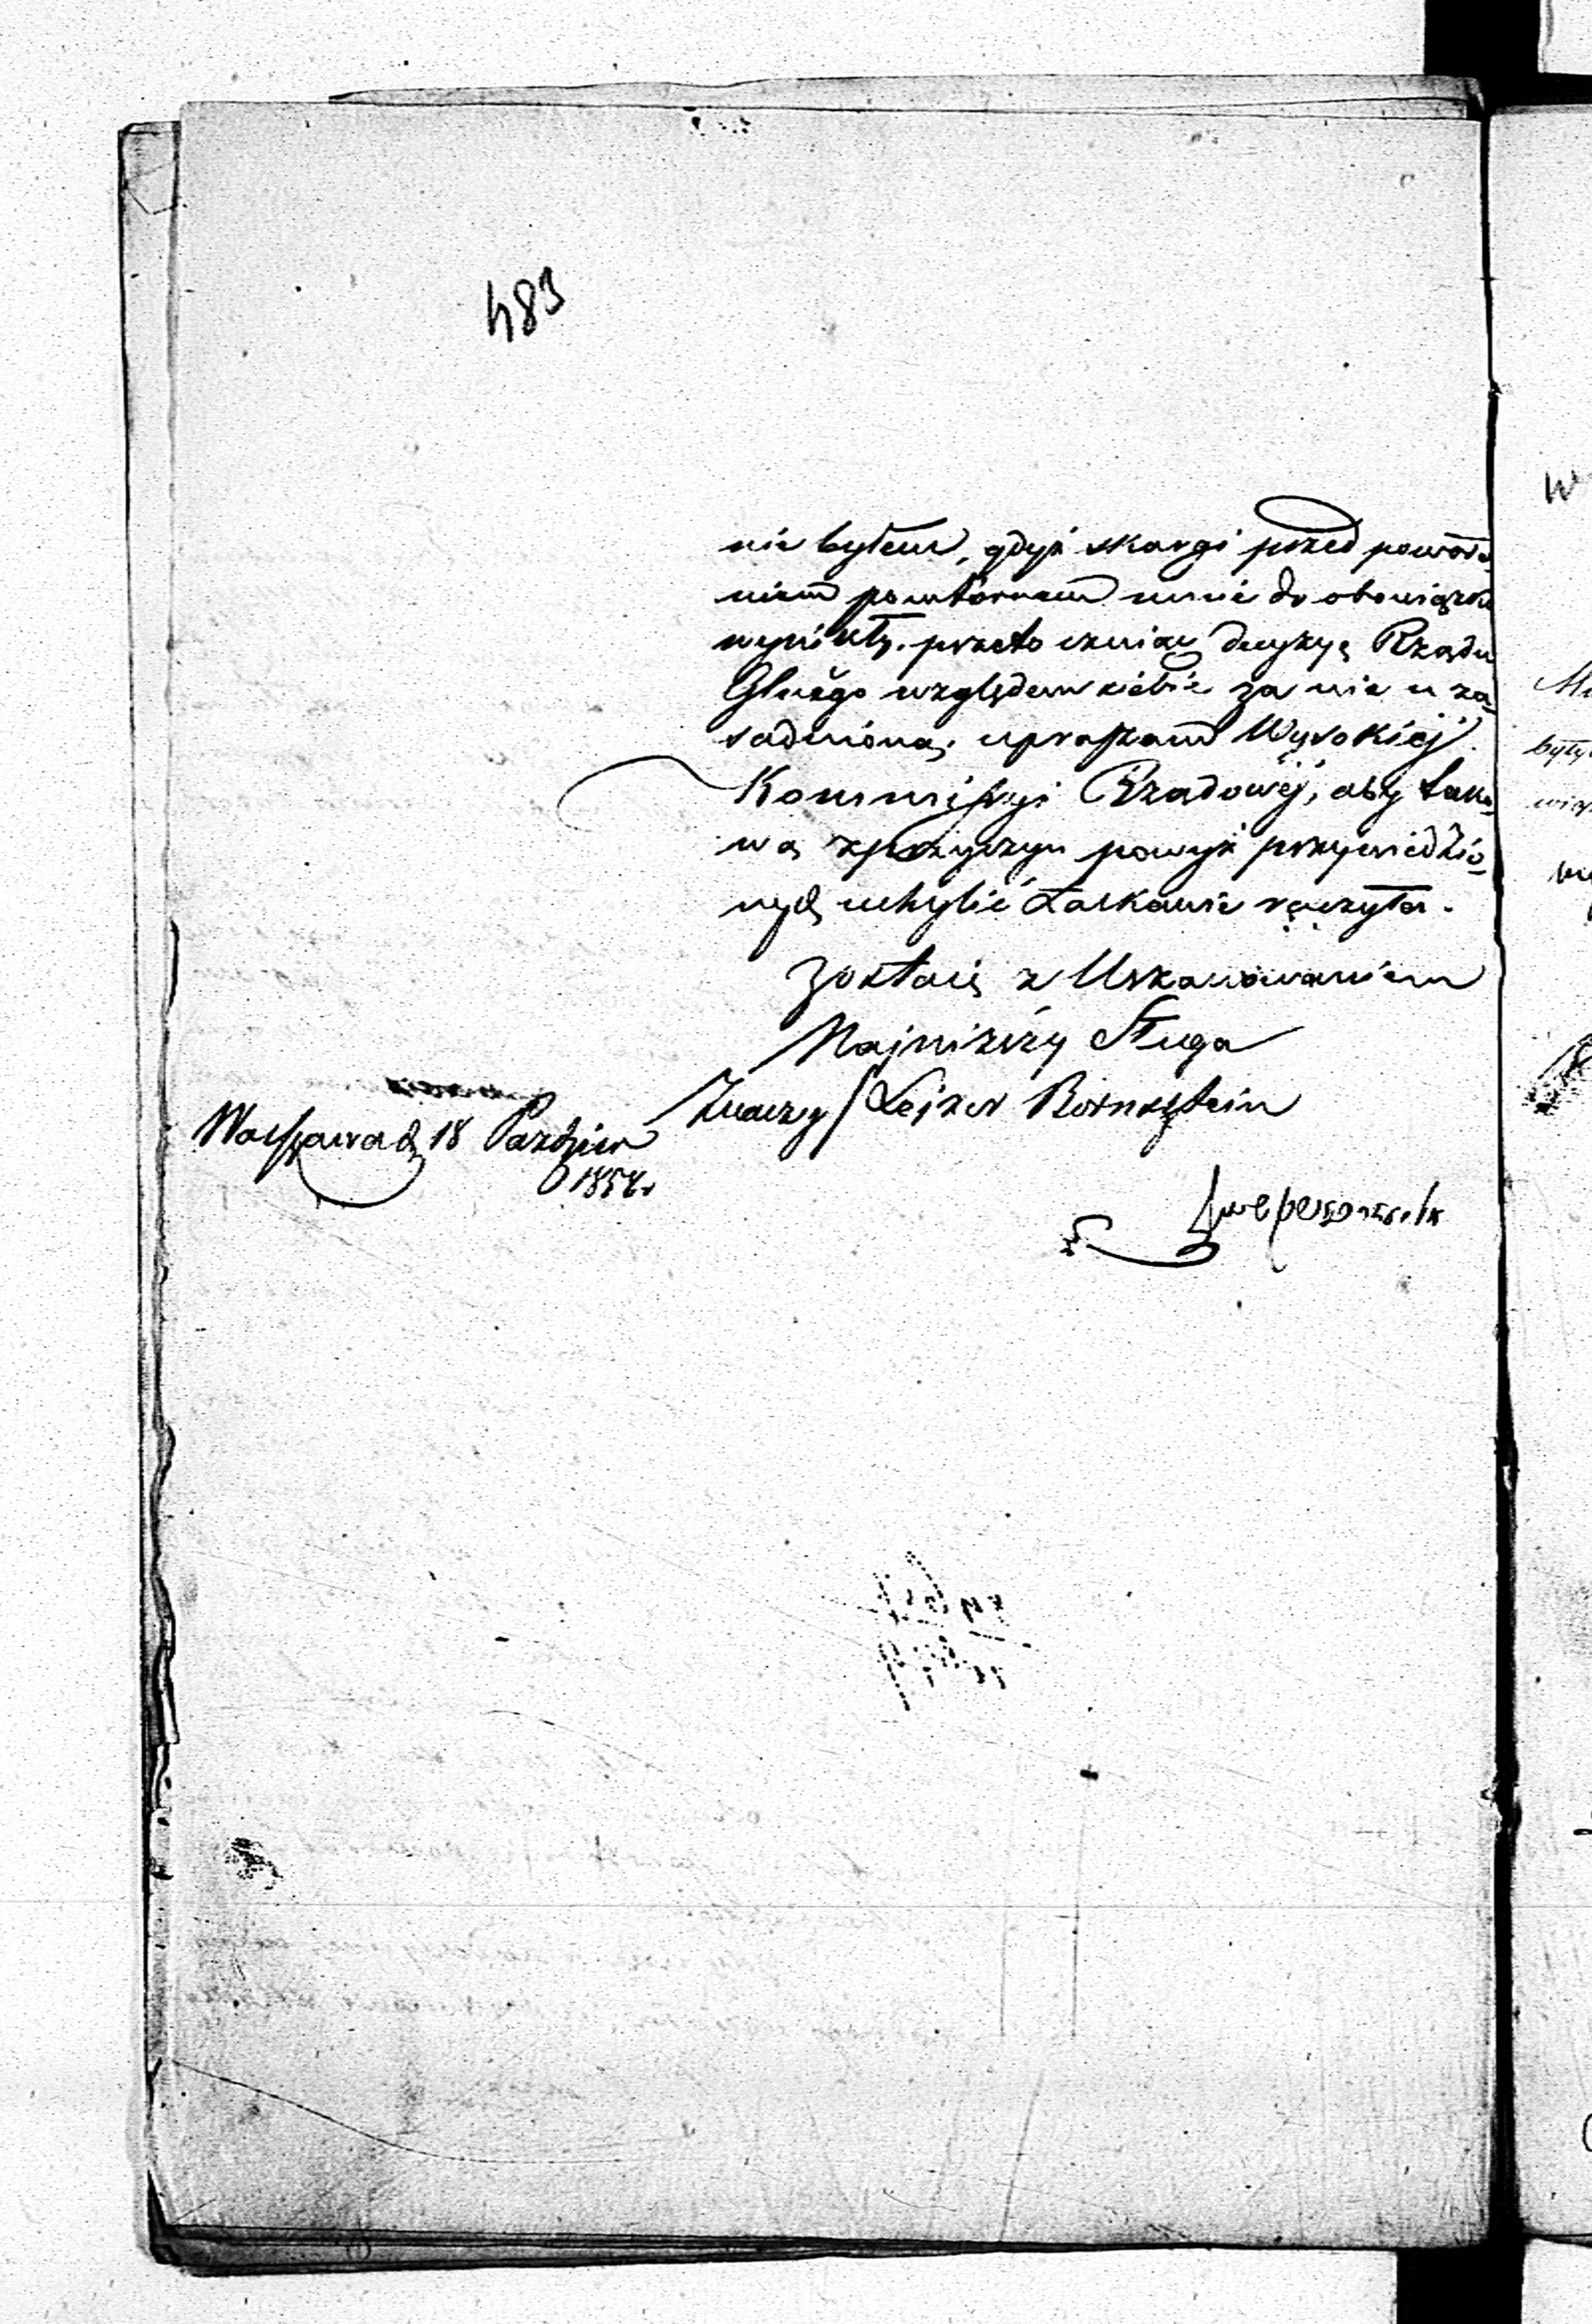 483
nie byłem, gdyż skargi przed powoła-
niem powtórnem mnie do obowiązku
wynikły. przeto czuiąc decyzyę Rządu
Glnego względem siebie za nie uza-
sadnioną, upraszam Wysokiéj
Kommissyi Rządowéj, aby tako-
wą z przyczyn powyż przywiedzio-
nych uchylić Łaskawie raczyła.
Zostaię z Uszanowaniem
Najniższy Sługa
Znaczy / Lejzer Bornsztein
Warszawa d. 18 Paździer
1858 r